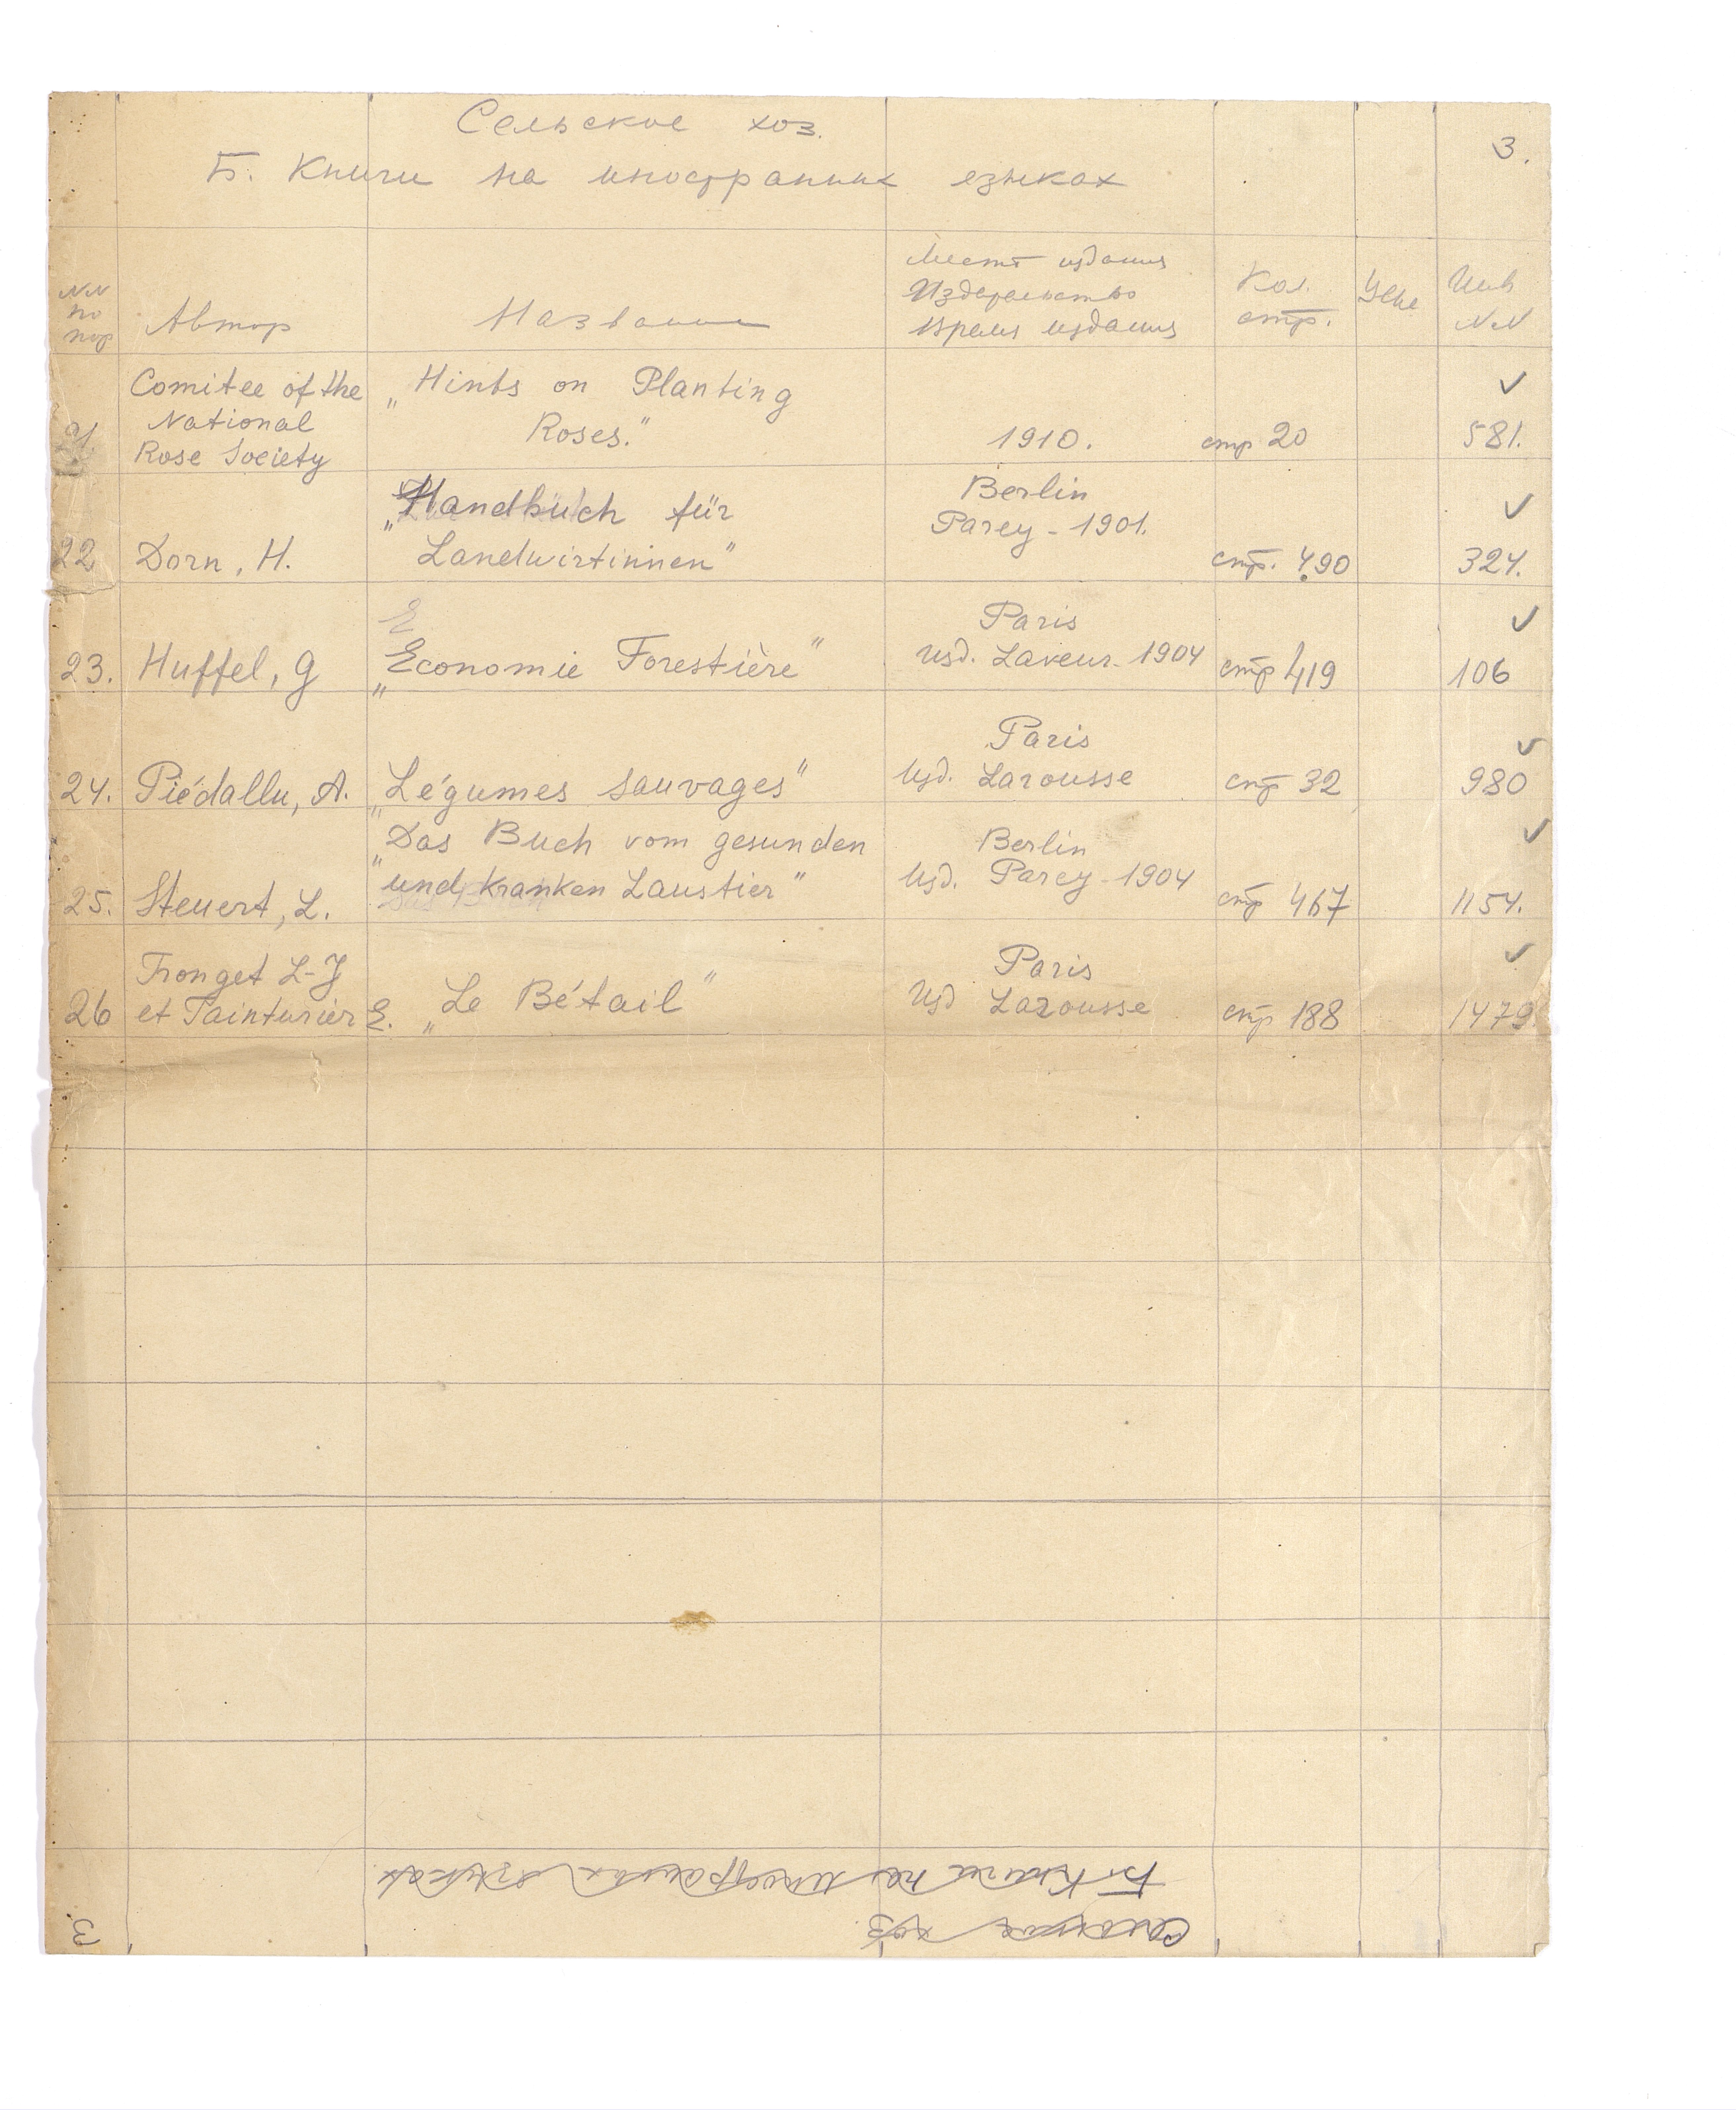 Сельское хоз.
3.
Б. Книги на иностранных езыках
NN по пор
Автор
Название
Место издания
Издательство
Время издания
Кол. стр.
Цена
Инв NN
Comitee of the
National
Rose Society
„Hints on Planting
Roses."
1910.
стр 20
✓
581.
22
Dorn, H.
„Handbuch für
Landwirtinnen"
Berlin
Parey - 1901.
стр. 490
✓
324.
23.
Huffel, G
E
„Economie Forestière"
Paris
Изд. Laveur - 1904
стр 419
✓
106
24.
Piédallu, A.
„Légumes sauvages"
Paris
Изд. Larousse
стр 32
✓
980
25.
Steuert, L.
„Das Buch vom gesunden
und kranken Laustier"
Berlin
Изд. Parey - 1904
стр 467
✓
1154.
26
Tronget L-J
et Tainturier E.
„Le Bétail"
Paris
Изд Larousse
стр 188
✓
1479
Б. Книги на иностранных езыках
Сельское хоз
3.